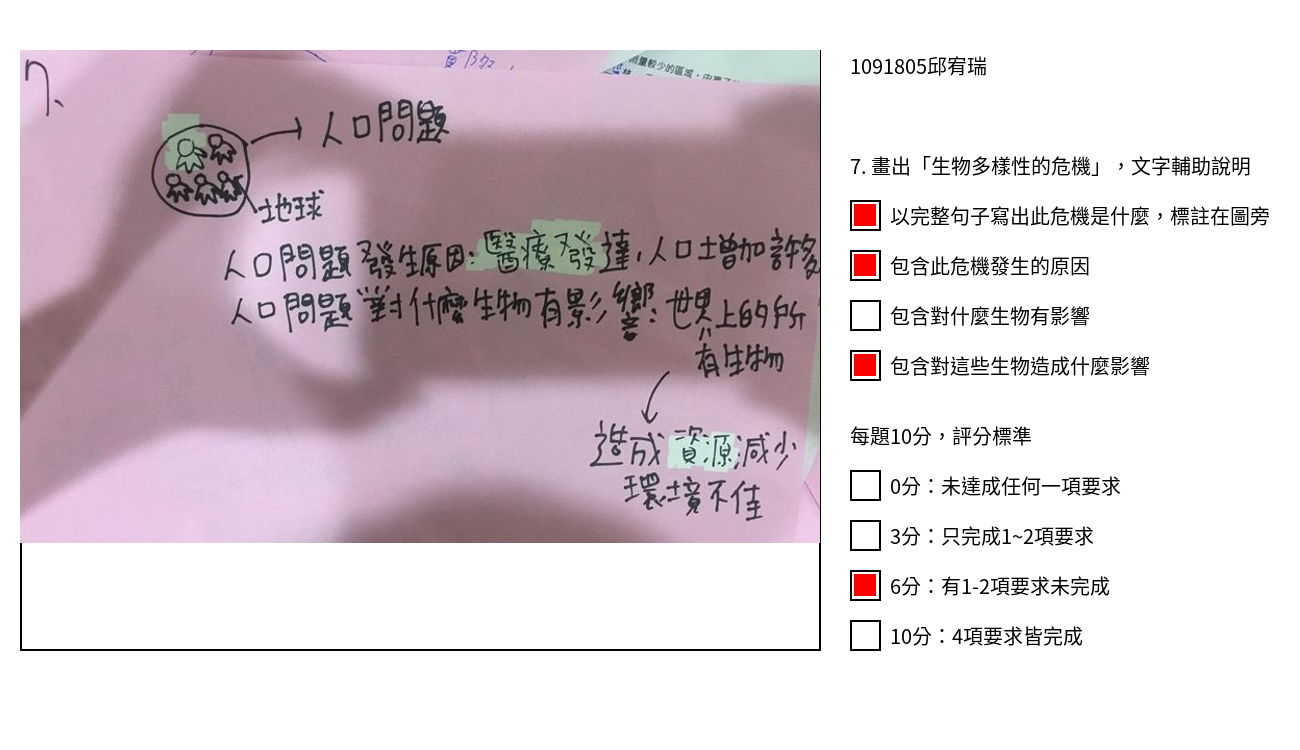 7.
人口問題
地球
人口問題發生原因:醫療發達,人口增加許多
人口問題對什麼生物有影響:世界上的所
有生物
造成資源減少
環境不佳
雨量較少的區域,中臺
1091805邱宥瑞
7. 畫出「生物多樣性的危機」,文字輔助說明
以完整句子寫出此危機是什麼,標註在圖旁
包含此危機發生的原因
包含對什麼生物有影響
包含對這些生物造成什麼影響
每題10分,評分標準
0分:未達成任何一項要求
3分:只完成1~2項要求
6分:有1-2項要求未完成
10分:4項要求皆完成